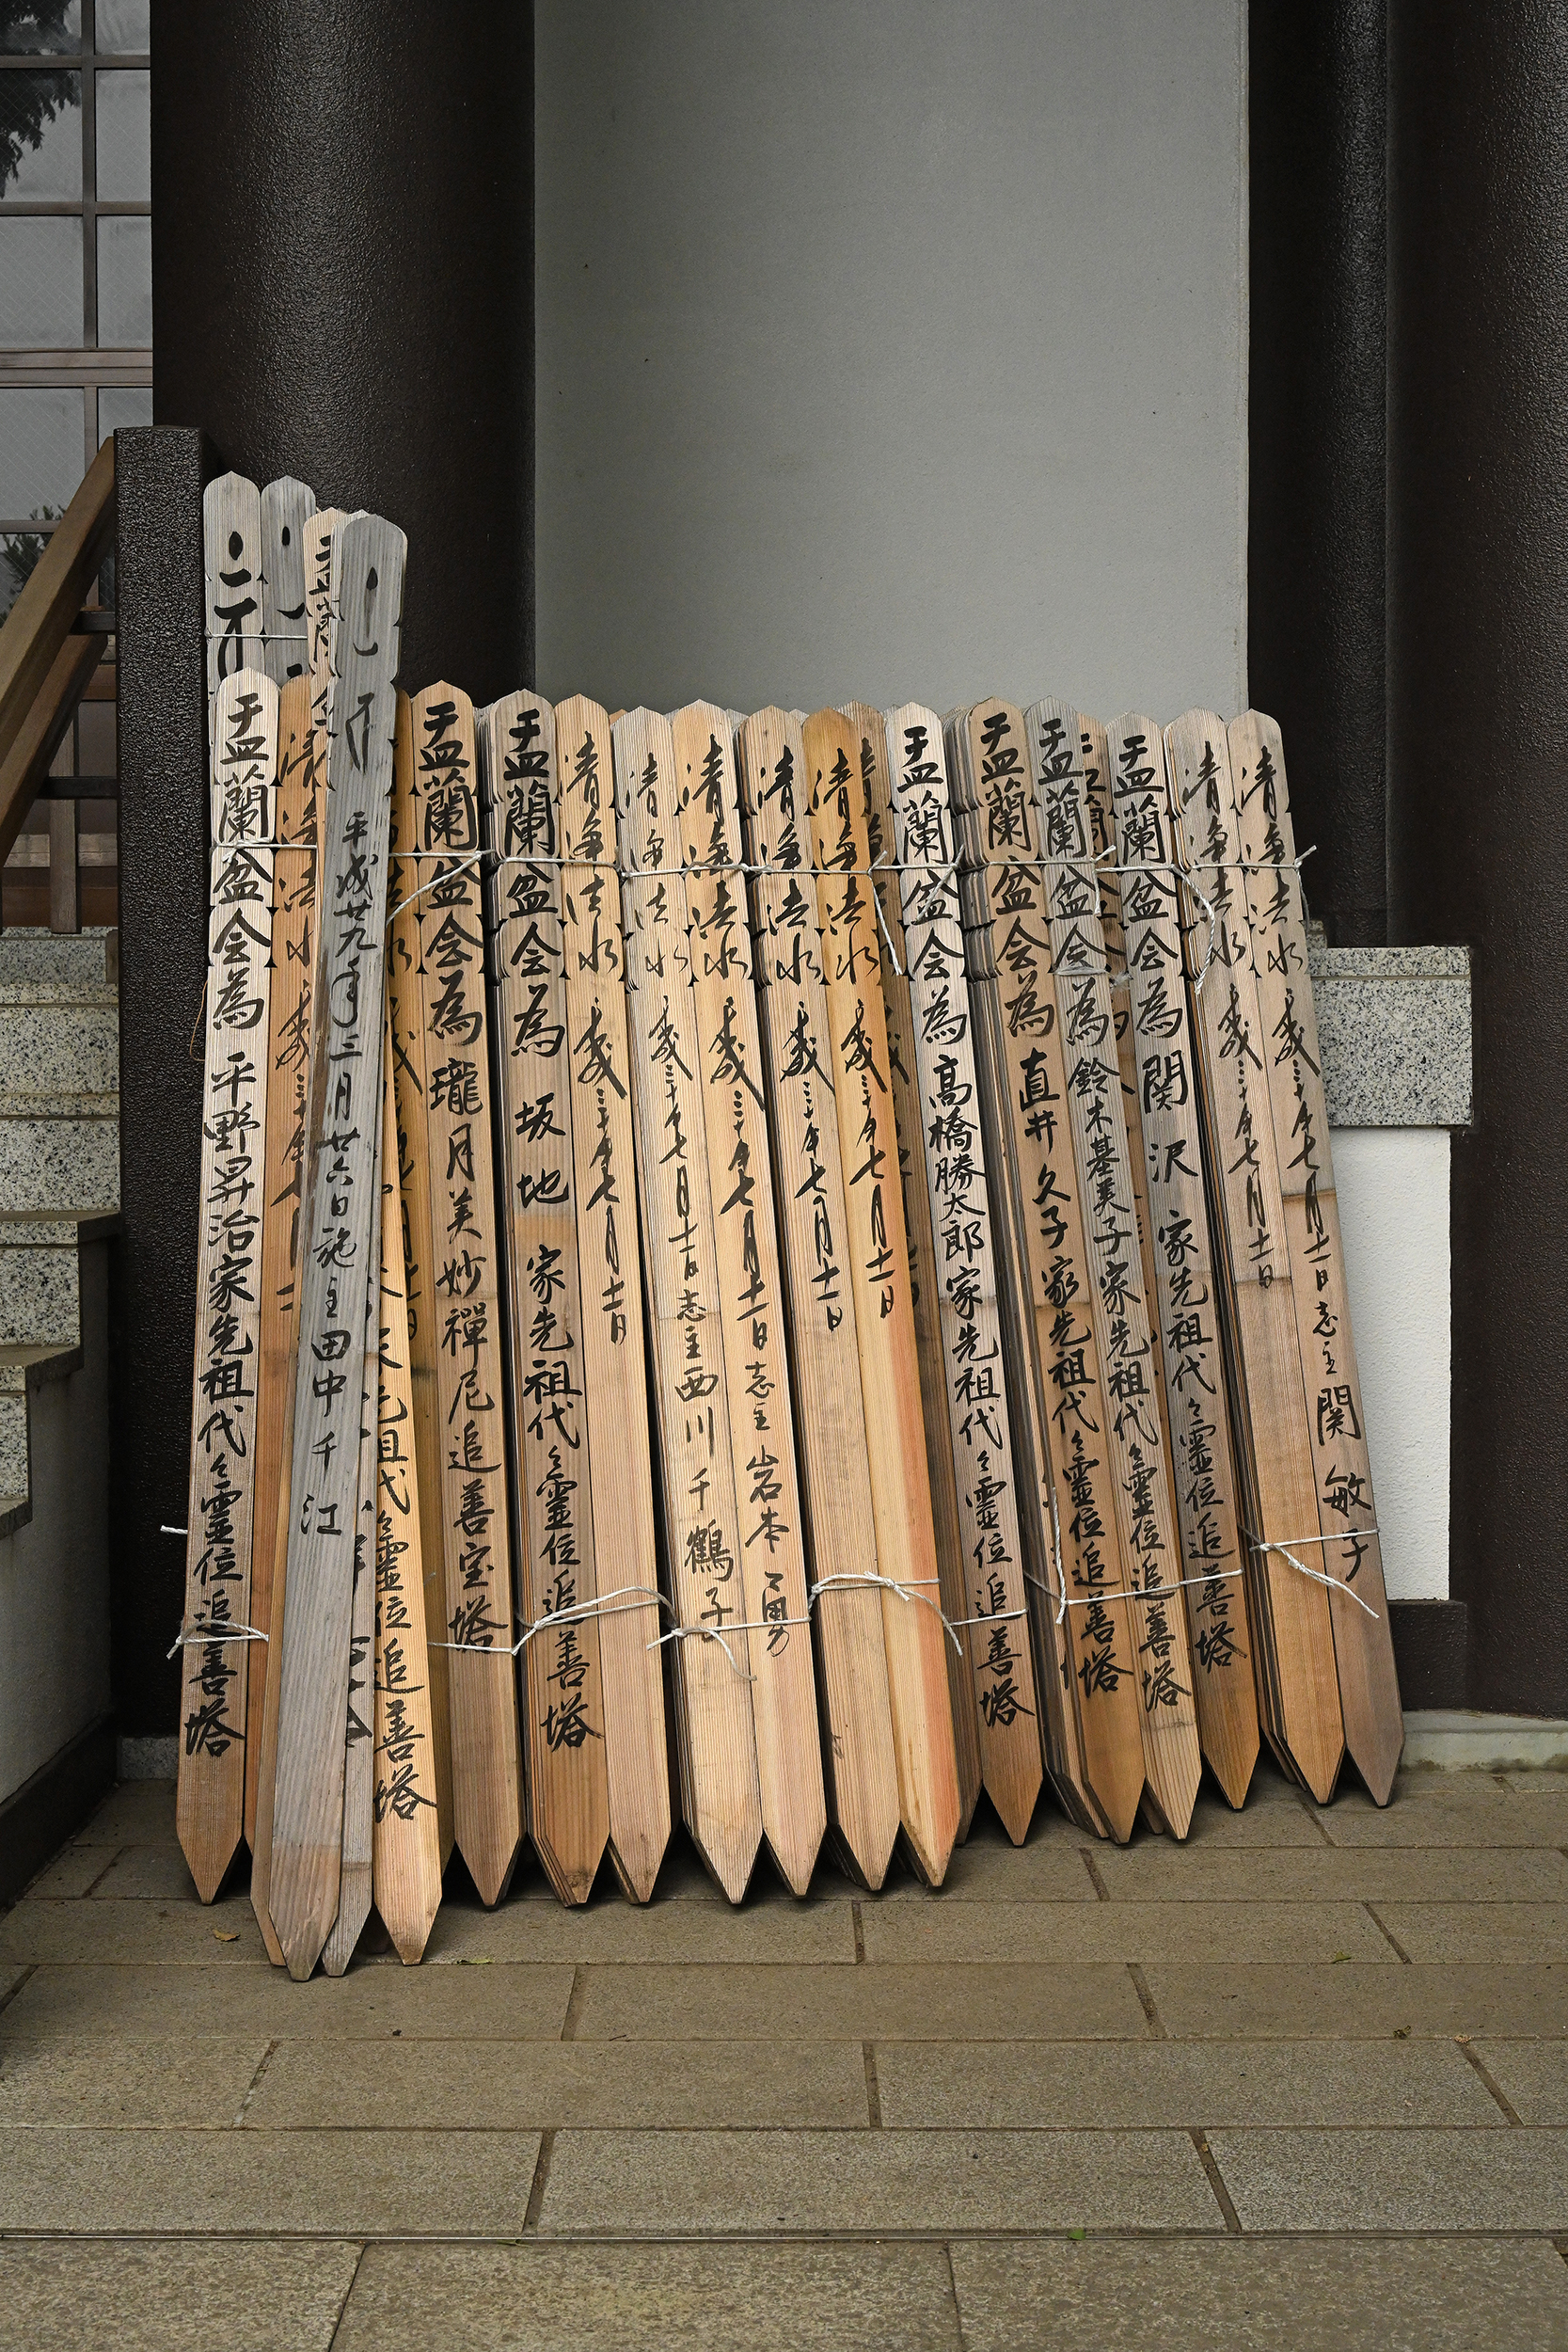 盂蘭盆会為 平野昇治家先祖代々霊位追善塔
平成廿九年三月廿六日施主田中千江
先祖代々霊位追善塔
盂蘭盆会為 瓏月美妙禪尼追善宝塔
盂蘭盆会為 坂地家先祖代々霊位追善塔
清浄法水 歳三十年七月十一日
清浄法水 歳三十年七月十一日志主西川千鶴子
清浄法水 歳三十年七月十一日志主岩本
清浄法水 歳三十年七月十一日
清浄法水 歳三十年七月十一日
盂蘭盆会為 高橋勝太郎家先祖代々霊位追善塔
盂蘭盆会為 直井久子家先祖代々霊位追善塔
盂蘭盆会為 鈴木基美子家先祖代々霊位追善塔
盂蘭盆会為 関沢家先祖代々霊位追善塔
清浄法水 歳三十年七月十一日
清浄法水 歳三十年七月十一日志主関敏子